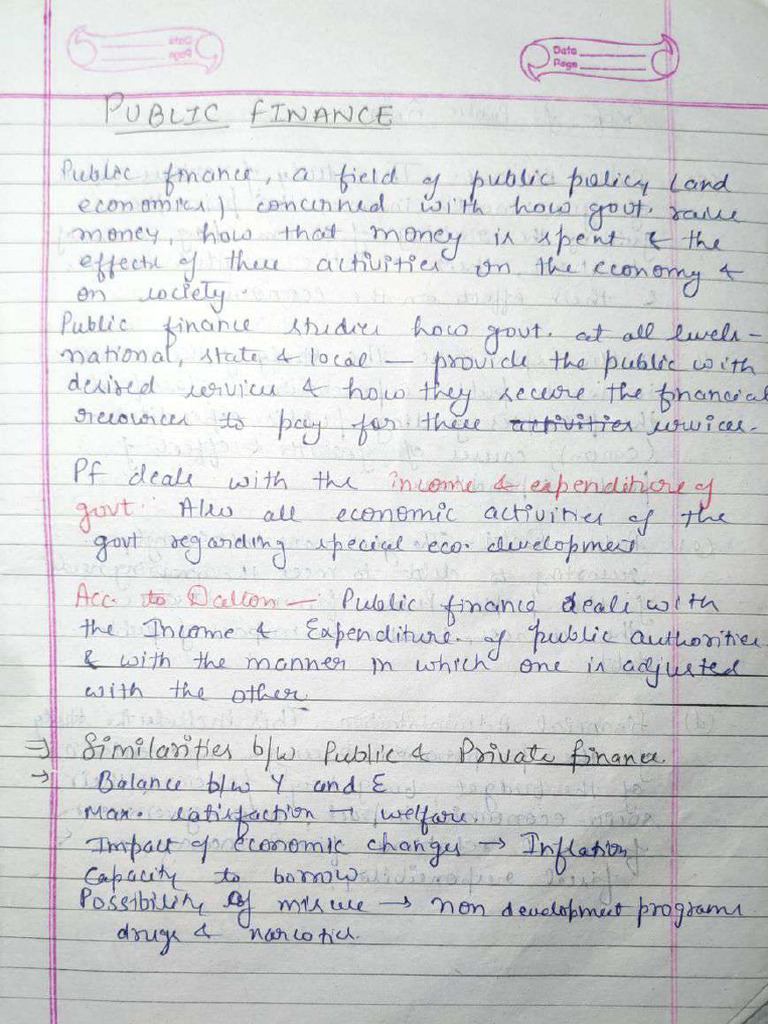 Date
Page
PUBLIC FINANCE
Public finance, a field of public policy (and
economics) concerned with how govt. raise
money, how that money is spent & the
effects of these activities on the economy &
on society.
Public finance studies how govt. at all levels-
national, state & local — provide the public with
desired services & how they secure the financial
resources to pay for these activities services.
Pf deals with the income & expenditure of
govt. Also all economic activities of the
govt regarding special eco. development
Acc. to Dalton — Public finance deals with
the Income & Expenditure of public authorities
& with the manner in which one is adjusted
with the other.
⇒ Similarities b/w Public & Private finance.
→ Balance b/w Y and E
Max. satisfaction → welfare
Impact of economic changes → Inflation
Capacity to borrow
Possibility of misuse → non development programs
drugs & narcotics.